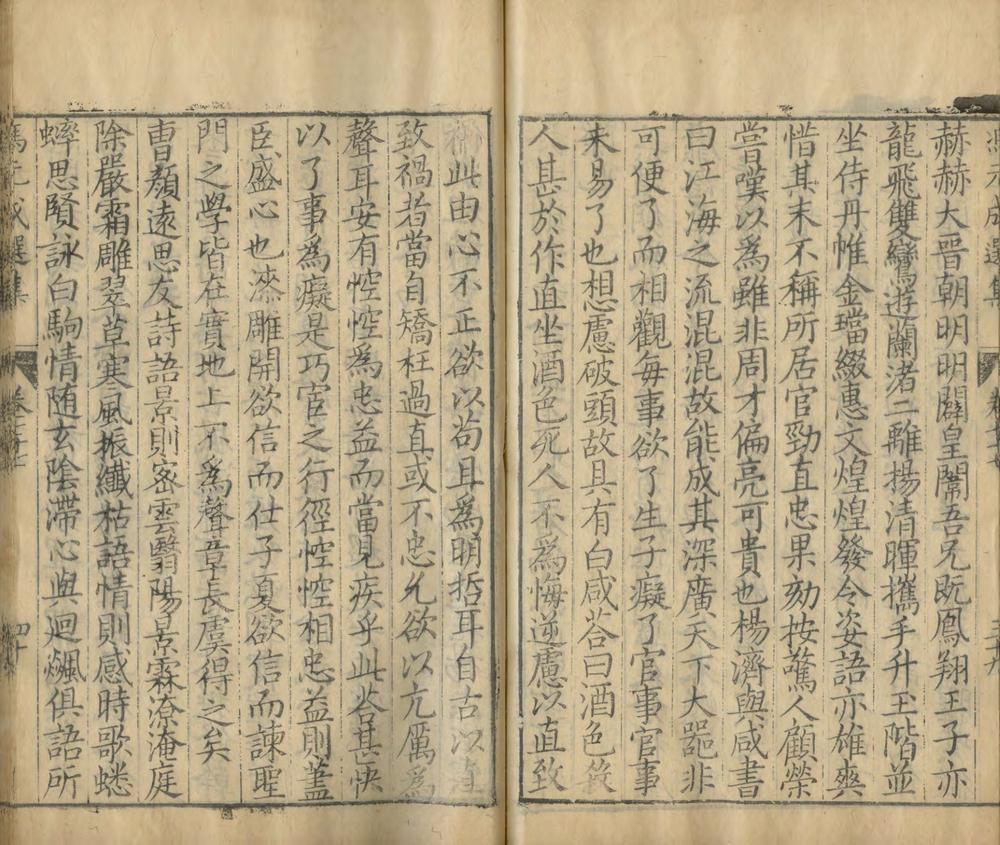 馮元成選集 卷之 三十九
赫赫大晉朝明明闢皇闈吾兄既鳳翔王子亦
龍飛雙鸞遊蘭渚二離揚清暉攜手升玉階並
坐侍丹帷金璫綴惠文煌煌發令姿語亦雄爽
惜其末不稱所居官勁直忠果劾按驚人顧榮
嘗嘆以為雖非周才偏亮可貴也楊濟與咸書
曰江海之流混混故能成其深廣天下大器非
可便了而相觀每事欲了生子癡了官事官事
未易了也想慮破頭故具有白咸荅曰酒色殺
人甚於作直坐酒色死人不為悔逆慮以直致
禍此由心不正欲以苟且為明哲耳自古以直
致禍者當自矯枉過直或不忠允欲以亢厲為
聲耳安有悾悾為忠益而當見疾乎此荅甚快
以了事為癡是巧宦之行徑悾悾相忠益則藎
臣盛心也漆雕開欲信而仕子夏欲信而諫聖
門之學皆在實地上不為聲章長虞得之矣
曹顏遠思友詩語景則密雲翳陽景霖潦淹庭
除嚴霜雕翠草寒風振纖枯語情則感時歌蟋
蟀思賢詠白駒情隨玄陰滯心與迴飈俱語所
馮元成選集 卷之 四十